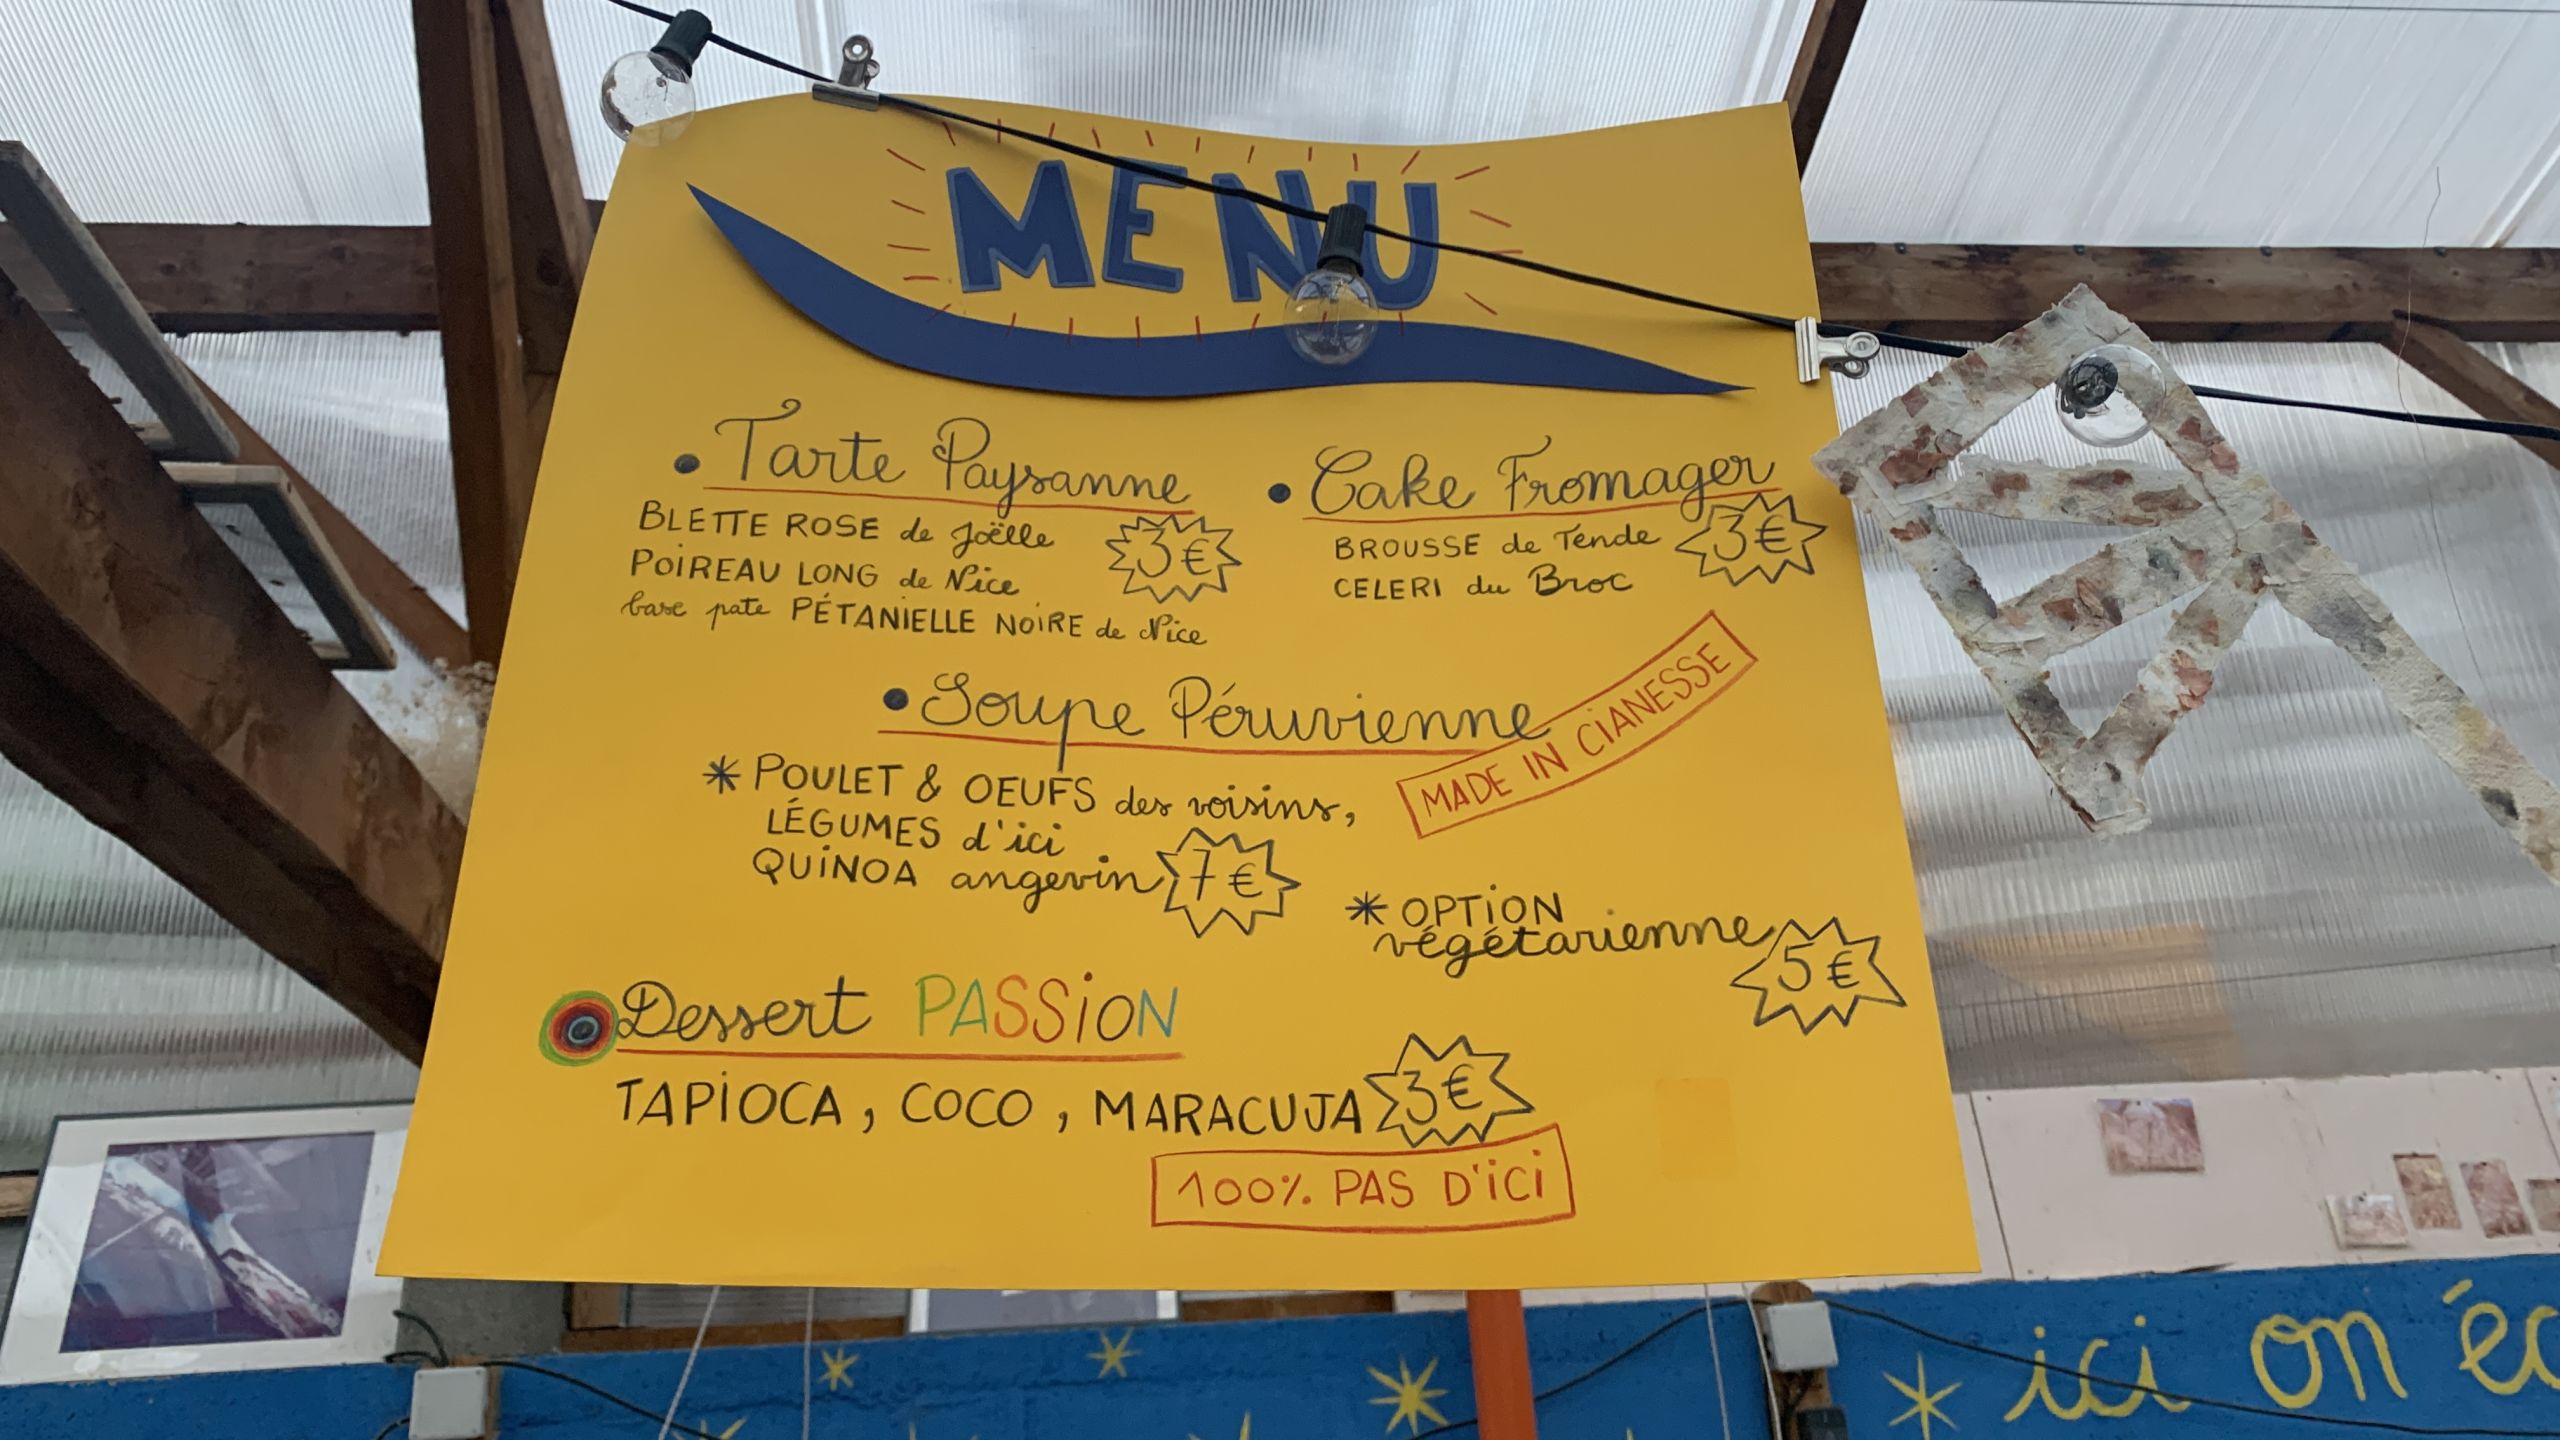 MENU
• Tarte Paysanne
BLETTE ROSE de Joëlle
POIREAU LONG de Nice
base pate PÉTANIELLE NOIRE de Nice
3€
• Cake Fromager
BROUSSE de Tende
CELERI du Broc
3€
• Soupe Péruvienne
MADE IN CIANESSE
* POULET & OEUFS des voisins,
LÉGUMES d'ici
QUINOA angevin 7€
* OPTION
végétarienne
5€
Dessert PASSION
TAPIOCA, COCO, MARACUJA 3€
100% PAS D'ICI
ici on éc